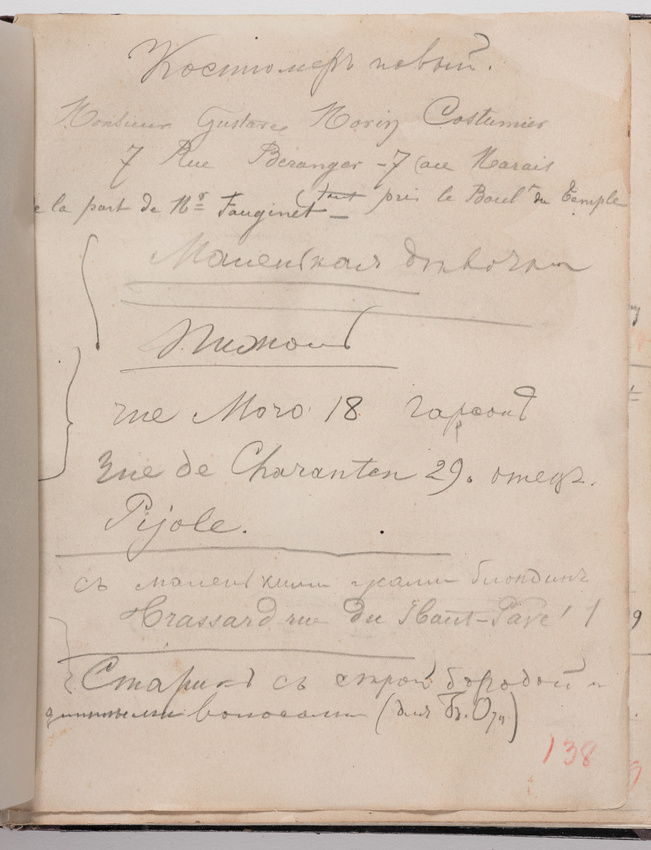 Костюмеръ новый.
Monsieur Gustave Morin Costumier
7 Rue Béranger - 7 (au Marais
de la part de Mr Fauginet (tout près le Boul-t du Temple
Маленькая девочка
rue Moro 18 гарсонъ
Rue de Charanton 29. отецъ.
Pijole.
съ маленькими усами блондинъ
Trassard rue du Haut-Pavé 1
Старикъ съ сѣрой бородой и
длинными волосами (для
138